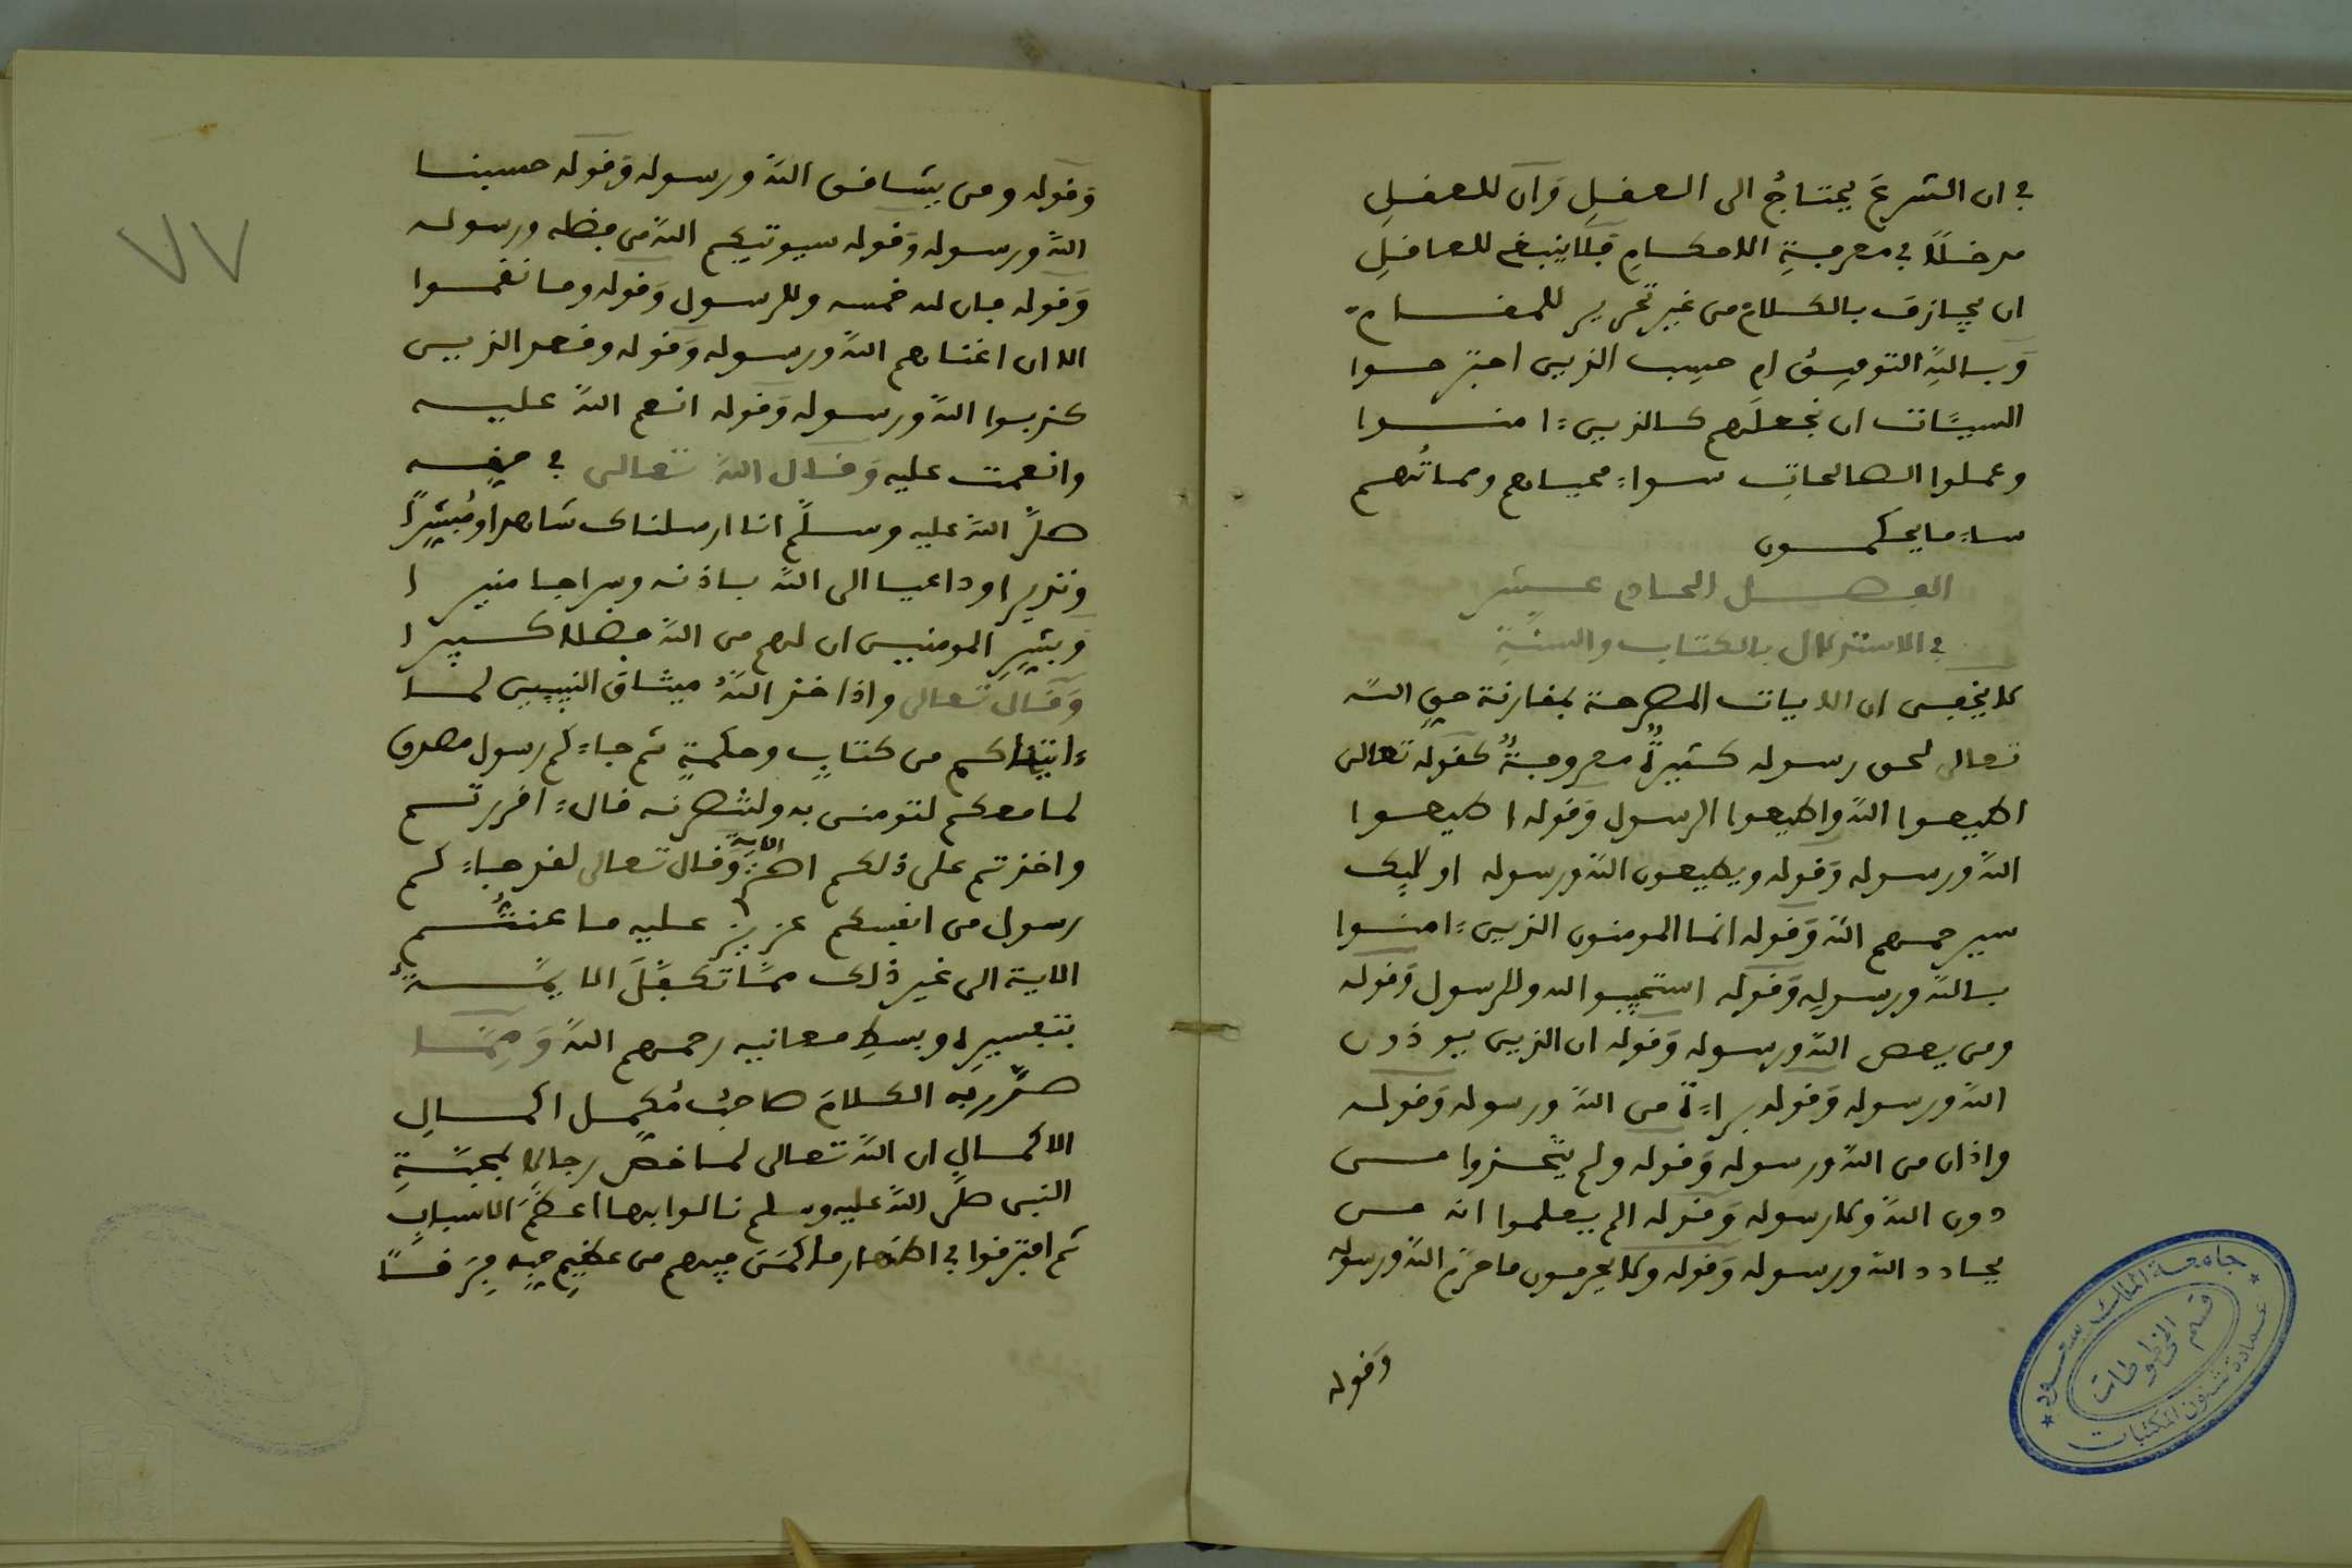 في ان الشرعَ يحتاجُ الى العقلِ وَان للعقلِ
مدخلًا في معرفةِ الاحكامِ فلا ينبغي للعاقلِ
ان يجازف بالكلام من غير تحرير للمقام
وَبالله التوفيق ام حسب الذين اجترحوا
السيئات ان نجعلَهم كالذين ءامنوا
وعملوا الصالحاتِ سواء محياهم ومماتُهم
ساء ما يحكمون
الفصل الحادي عشر
في الاستدلال بالكتاب والسنة
لا يخفى ان الايات المصرحة بمقارنة حق الله
تعالى لحق رسوله كثيرةٌ معروفةٌ كقوله تعالى
اطيعوا الله واطيعوا الرسول وَقوله اطيعوا
الله ورسوله وَقوله ويطيعون الله ورسوله اولئك
سيرحمهم الله وَقوله انما المومنون الذين ءامنوا
بالله ورسوله وَقوله استجيبوا لله وللرسول وَقوله
ومن يعص الله ورسوله وَقوله ان الذين يوذون
الله ورسوله وَقوله براءة من الله ورسوله وَقوله
واذان من الله ورسوله وَقوله ولم يتخذوا من
دون الله ولا رسوله وَقوله الم يعلموا انه من
يحادد الله ورسوله وَقوله ولا يحرمون ما حرم الله ورسوله
وَقوله
٧٧
وَقوله ومن يشاقق الله ورسوله وَقوله حسبنا
الله ورسوله وَقوله سيوتيكم الله من فضله ورسوله
وَقوله فان لله خمسه وللرسول وَقوله وما نقموا
الا ان اغناهم الله ورسوله وَقوله وقعد الذين
كذبوا الله ورسوله وَقوله انعم الله عليه
وانعمت عليه وَقال الله تعالى في حقه
صلى الله عليه وسلم انا ارسلناك شاهدا ومُبشّرًا
ونذيرا وداعيا الى الله باذنه وسراجا منيرا
وبشر المومنين ان لهم من الله فضلا كبيرا
وَقال تعالى واذ اخذ اللهُ ميثاق النبيين لما
ءاتيناكم من كتابٍ وحكمةٍ ثم جاءكم رسول مصدق
لما معكم لتومنن به ولتنصرنه قال ءاقررتم
واخذتم على ذلكم اصري الاية وَقال تعالى لقد جاءكم
رسول من انفسكم عزيز عليه ما عنتُّم
الاية الى غير ذلك ممَّا تكفَّلَ الايمَّةُ
بتفسيرِه وبسطِ معانيه رحمهم الله وَمِمَّا
صدَّرَ به الكلامَ صاحبُ مُكمل اكمالِ
الاكمالِ ان الله تعالى لما خصَّ رجالا بمحبَّةِ
النبي صلى الله عليه وسلم نالوا بها اعظمَ الاسبابِ
ثم افترقوا في اظهار ما كمَن فيهم من عظيم حبِّه فِرَقًا
جامعة الملك سعود
قسم المخطوطات
عمادة شئون المكتبات